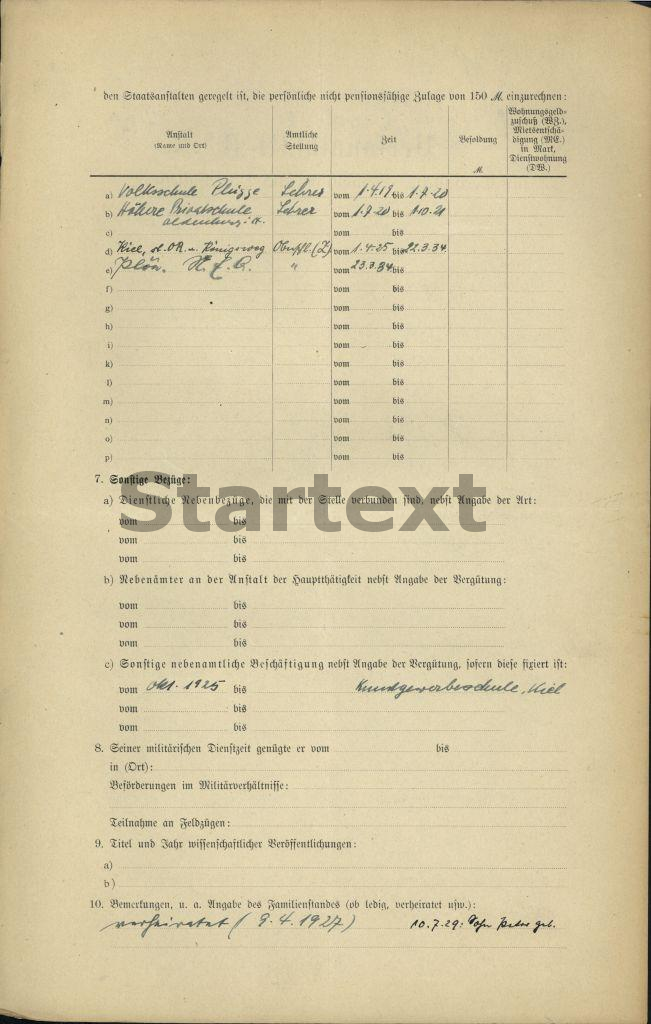 den Staatsanstalten geregelt ist, die persönliche nicht pensionsfähige Zulage von 150 M. einzurechnen:
Anstalt
(Name und Ort)
Amtliche
Stellung
Zeit
Besoldung
M.
Wohnungsgeld-
zuschuß (WZ.),
Mietsentschä-
digung (ME.)
in Mark,
Dienstwohnung
(DW.)
a) Volksschule Plügge Lehrer vom 1.4.19 bis 1.7.20
b) Höhere Privatschule Lehrer vom 1.7.20 bis 1.10.21
Oldenburg i. H.
c) vom bis
d) Kiel, O.R. u. Königsweg vom 1.4.25 bis 22.3.34.
e) Plön. " vom 23.3.34. bis
f) vom bis
g) vom bis
h) vom bis
i) vom bis
k) vom bis
l) vom bis
m) vom bis
n) vom bis
o) vom bis
p) vom bis
7. Sonstige Bezüge:
Startext
a) Dienstliche Nebenbezüge, die mit der Stelle verbunden sind, nebst Angabe der Art:
vom bis
vom bis
vom bis
b) Nebenämter an der Anstalt der Hauptthätigkeit nebst Angabe der Vergütung:
vom bis
vom bis
vom bis
c) Sonstige nebenamtliche Beschäftigung nebst Angabe der Vergütung, sofern diese fixiert ist:
vom Okt. 1925 bis Kunstgewerbeschule, Kiel
vom bis
vom bis
8. Seiner militärischen Dienstzeit genügte er vom bis
in (Ort):
Beförderungen im Militärverhältnisse:
Teilnahme an Feldzügen:
9. Titel und Jahr wissenschaftlicher Veröffentlichungen:
a)
b)
10. Bemerkungen, u. a. Angabe des Familienstandes (ob ledig, verheiratet usw.):
verheiratet (9.4.1927) 10.7.29: Sohn Peter geb.